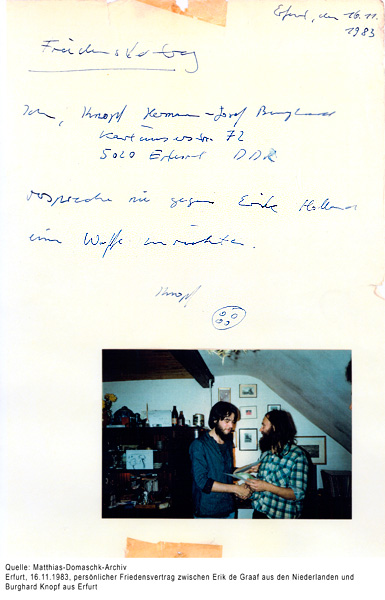 Erfurt, den 16.11.
1983
Friedensvertrag
Ich, Knopf Herman-Josef Burghard
Kartäuserstr. 72
5020 Erfurt DDR
verspreche nie gegen Erik Holland
eine Waffe zu richten.
Knopf
Quelle: Matthias-Domaschk-Archiv
Erfurt, 16.11.1983, persönlicher Friedensvertrag zwischen Erik de Graaf aus den Niederlanden und
Burghard Knopf aus Erfurt